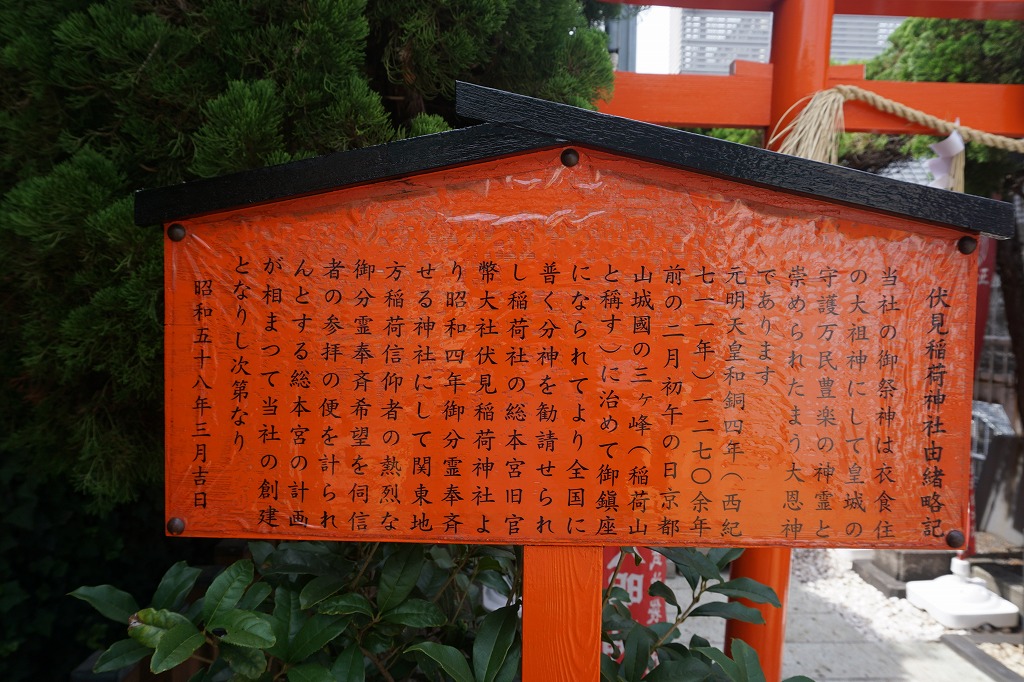 伏見稲荷神社由緒略記
当社の御祭神は衣食住
の大祖神にして皇城の
守護万民豊楽の神霊と
崇められたまう大恩神
であります
元明天皇和銅四年(西紀
七一一年)一二七〇余年
前の二月初午の日京都
山城國の三ヶ峰(稲荷山
と稱す)に治めて御鎭座
になられてより全国に
普く分神を勧請せられ
し稲荷社の総本宮旧官
幣大社伏見稲荷神社よ
り昭和四年御分霊奉斉
せる神社にして関東地
方稲荷信仰者の熱烈な
御分霊奉斉希望を伺信
者の参拝の便を計られ
んとする総本宮の計画
が相まつて当社の創建
となりし次第なり
昭和五十八年三月吉日